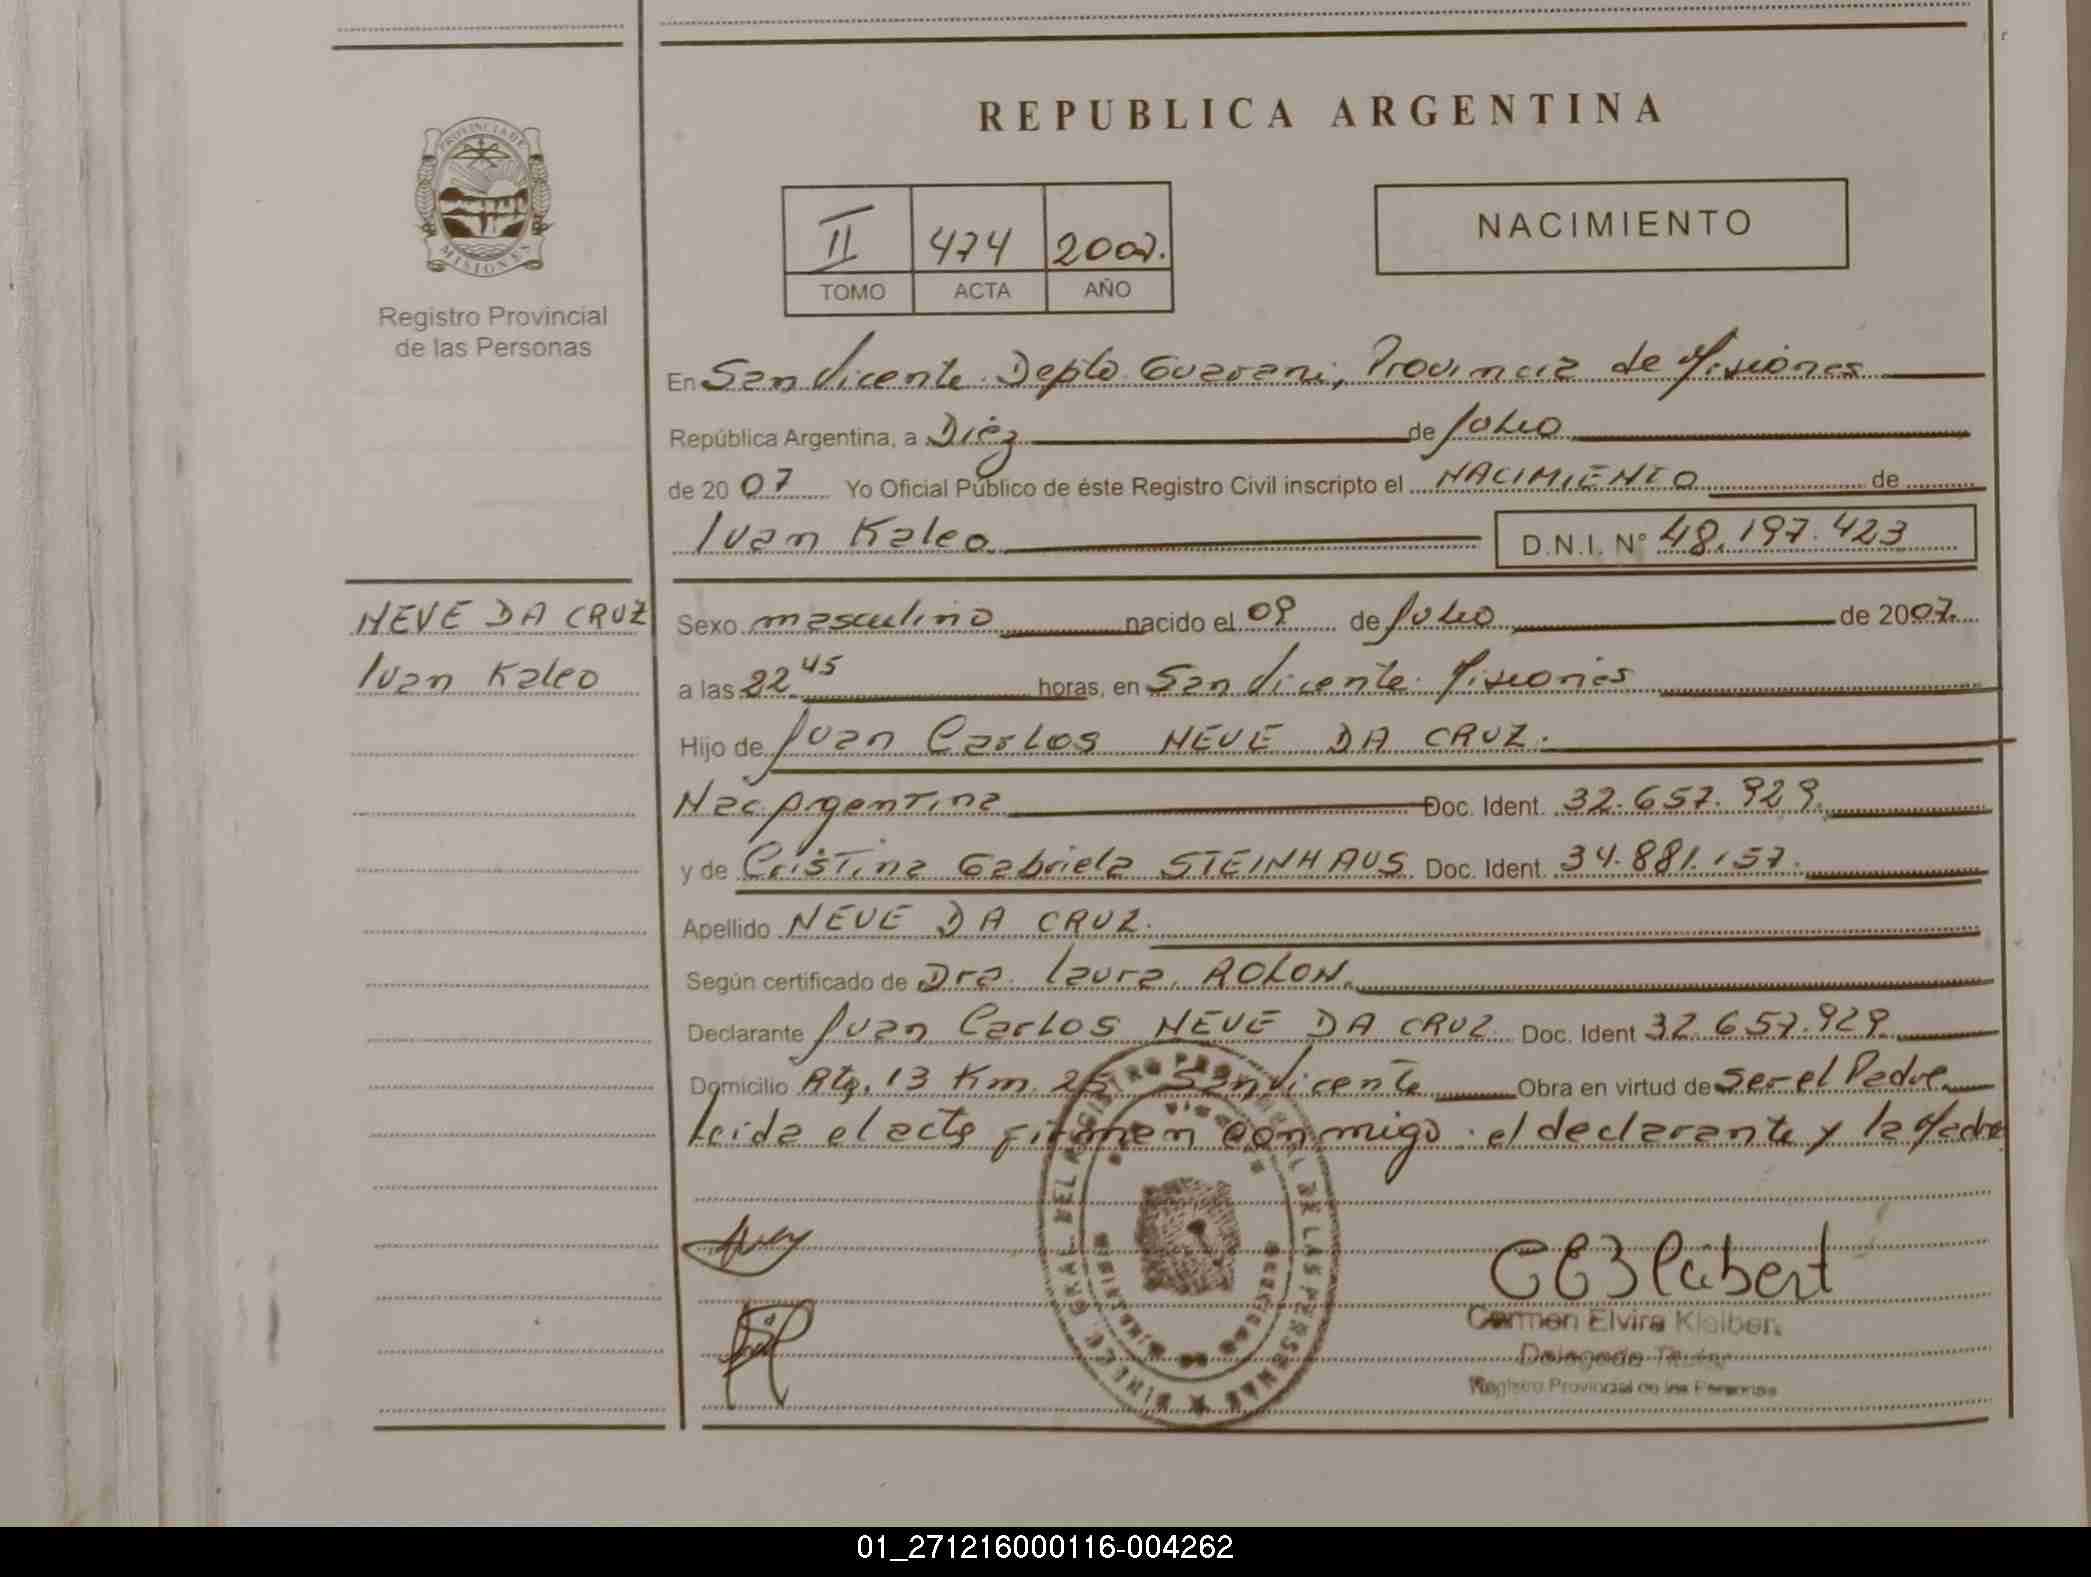 REPUBLICA ARGENTINA
PROVINCIA DE
MISIONES
Registro Provincial
de las Personas
II 474 2007.
TOMO ACTA AÑO
NACIMIENTO
En San Vicente Depto Guarani, Provincia de Misiones
República Argentina, a Diez de Julio
de 2007 Yo Oficial Público de éste Registro Civil inscripto el NACIMIENTO de
Ivan Kaleo D.N.I. N° 48.197.423
NEVE DA CRUZ
Ivan Kaleo
Sexo masculino nacido el 09 de Julio de 2007.
a las 22 45 horas, en San Vicente Misiones
Hijo de Juan Carlos NEVE DA CRUZ.
Nac Argentina Doc. Ident. 32.657.929.
y de Cristina Gabriela STEINHAUS. Doc. Ident. 34.881.157.
Apellido NEVE DA CRUZ.
Según certificado de Dra. Laura ROLON.
Declarante Juan Carlos NEVE DA CRUZ Doc. Ident 32.657.929
Domicilio Rta. 13 Km. 26 San Vicente Obra en virtud de ser el Padre
Leida el acta firman conmigo el declarante y la Madre
DIREC. GRAL. DEL REGISTRO PROVINCIAL DE LAS PERSONAS
Carmen Elvira
Delegada Titular
Registro Provincial de las Personas
01_271216000116-004262